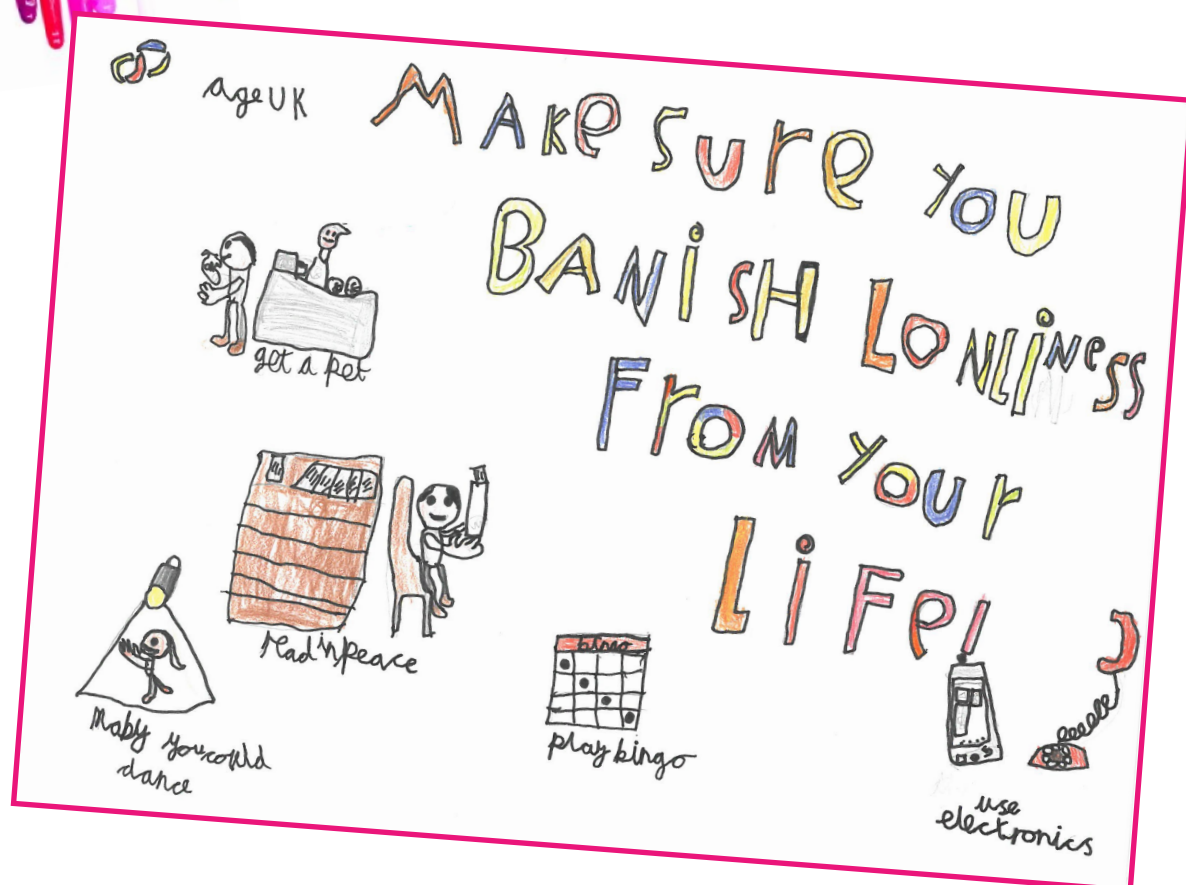 ageUK
MAKe SUre you
BANiSH LONLiNeSS
FrOM your
LiFe!
get a pet
read in peace
Maby you could
dance
bingo
play bingo
use
electronics